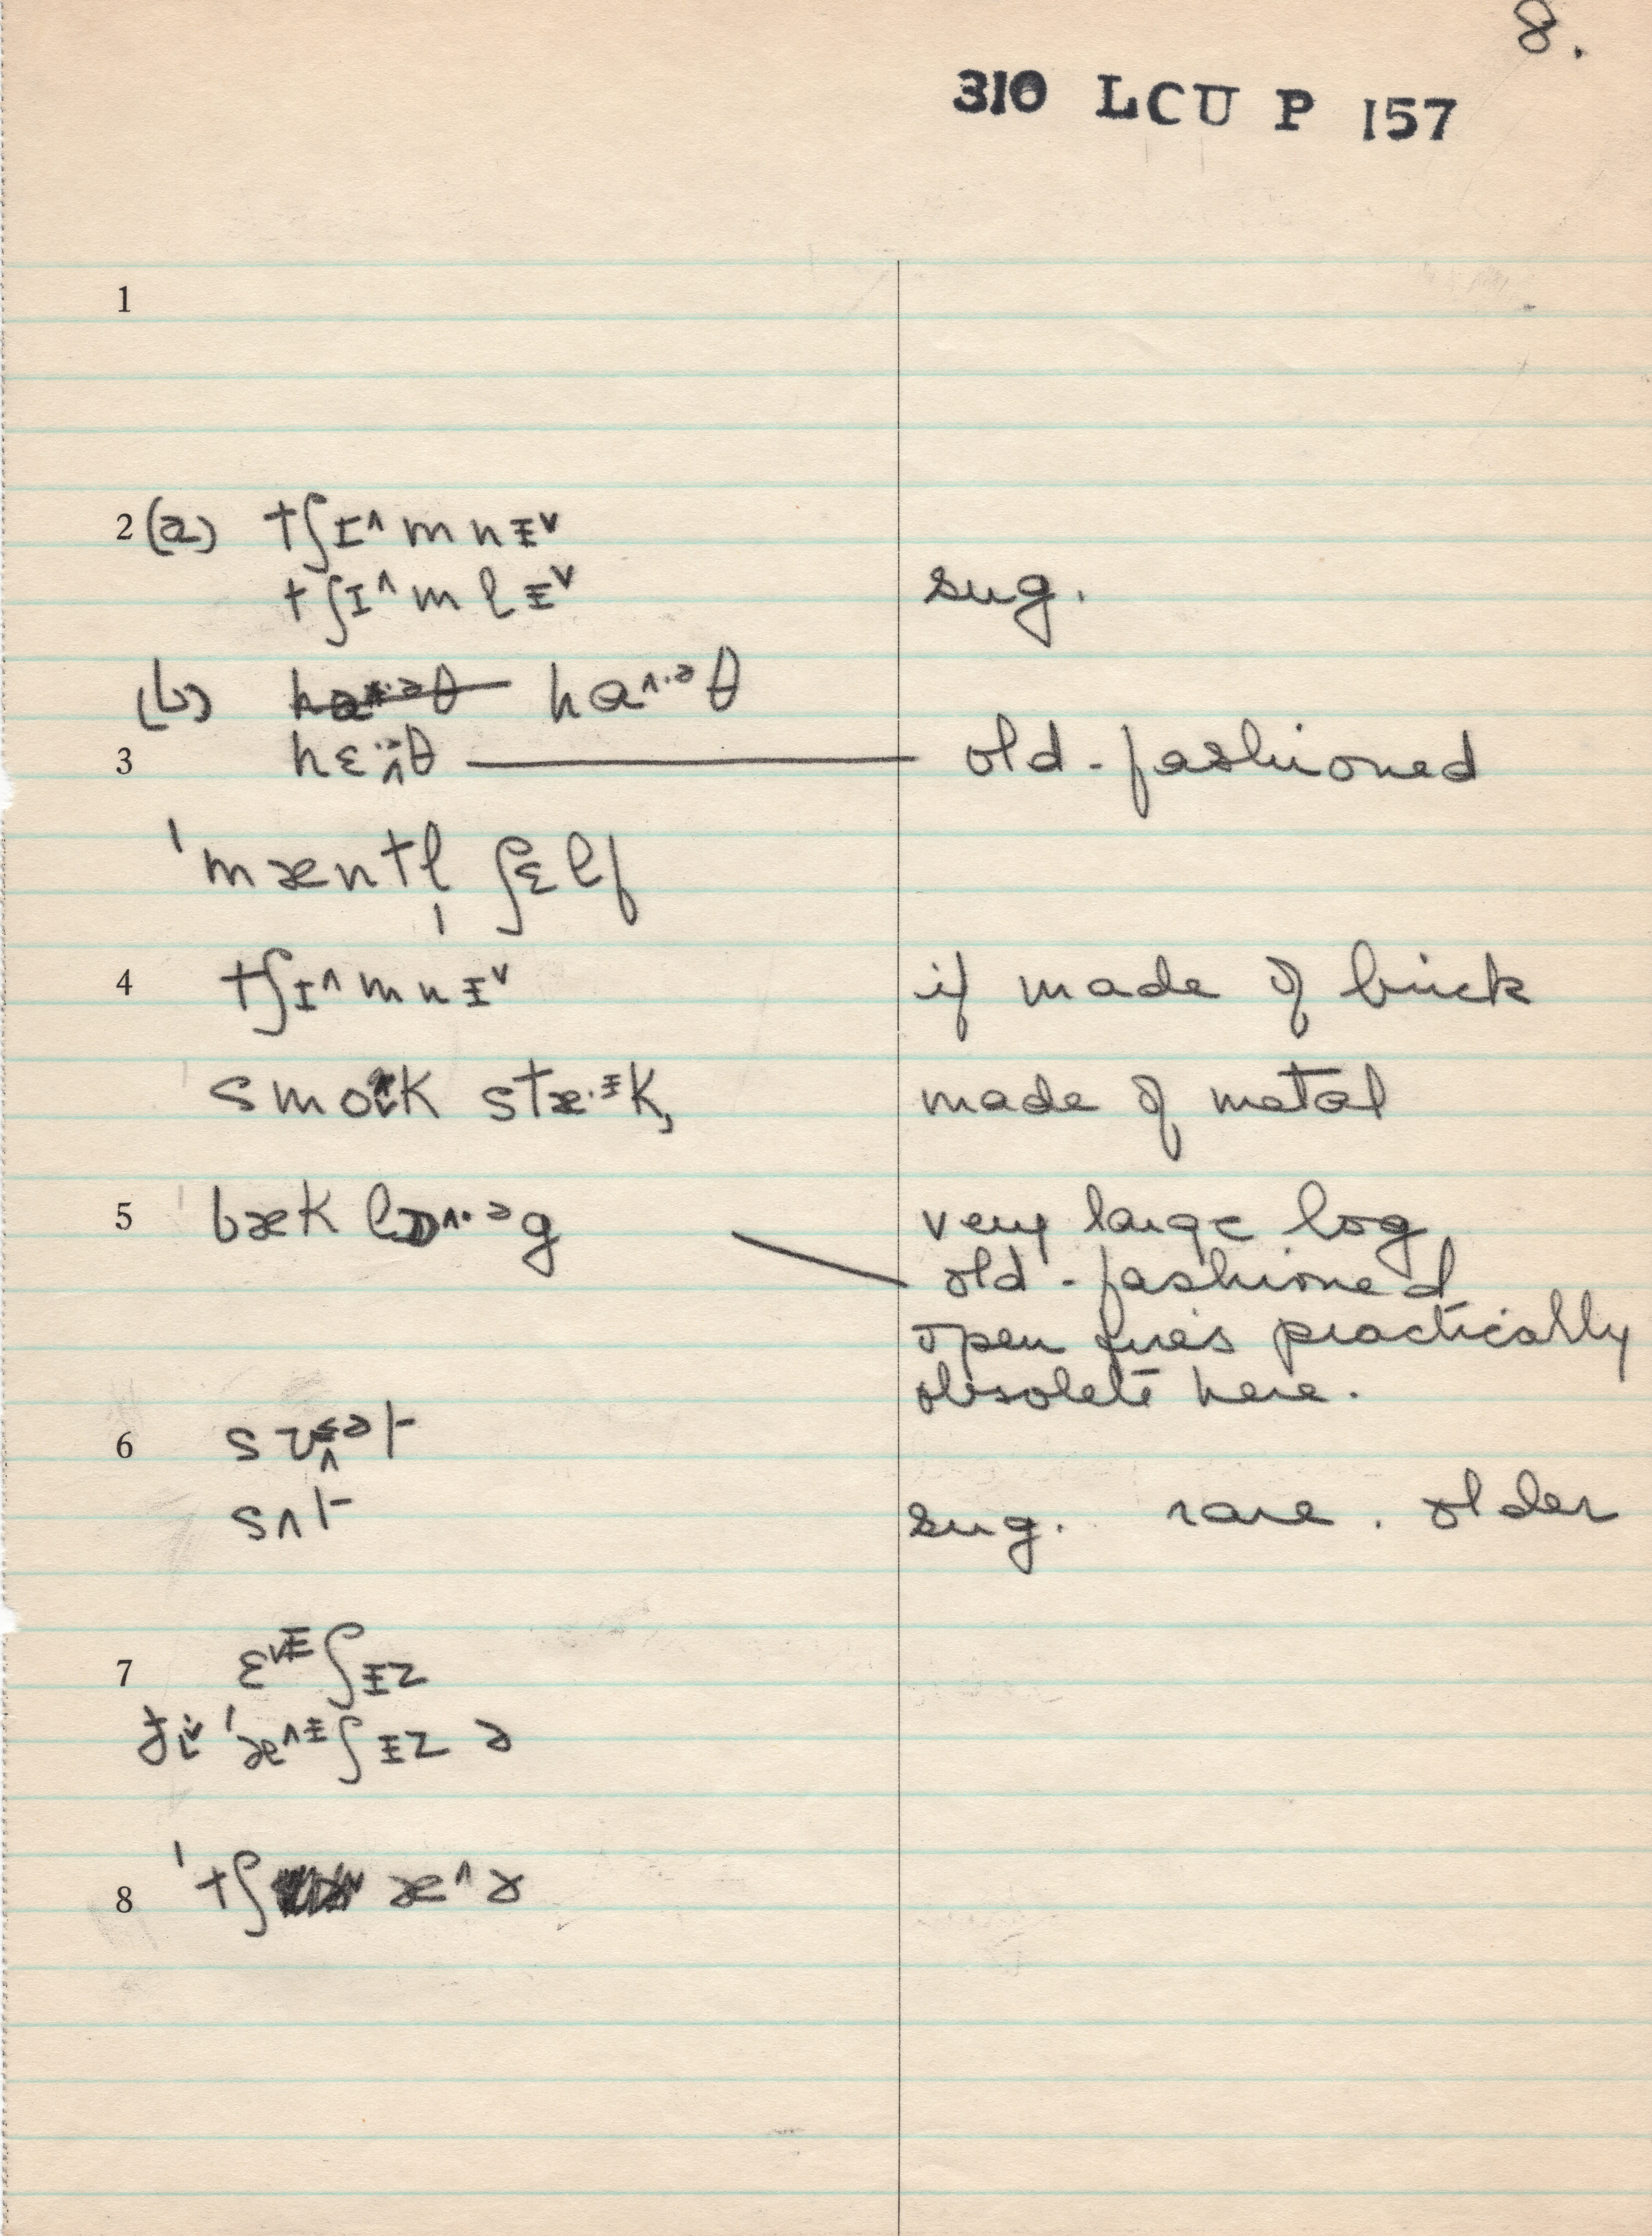 8.
310 LCU P 157
1
2 (a) tʃɪ^mnᵻ˅
tʃɪ^mlᵻ˅ sug.
(b) haθ haˆ·ᵊθ
3 hɛθ old-fashioned
ˈmæntl̩ ʃɛlf
4 tʃɪ^mnᵻ˅ if made of brick
ˈsmok stæ·ᵻk, made of metal
5 ˈbæk lɒˆ·ᵊg very large log
old-fashioned
open fires practically
obsolete here.
6
sʌt sug. rare. older
7 ɛ˅ᵻʃᵻz
ˈæ^ᵻʃᵻz ə
8 ˈtʃ æ^ɚ